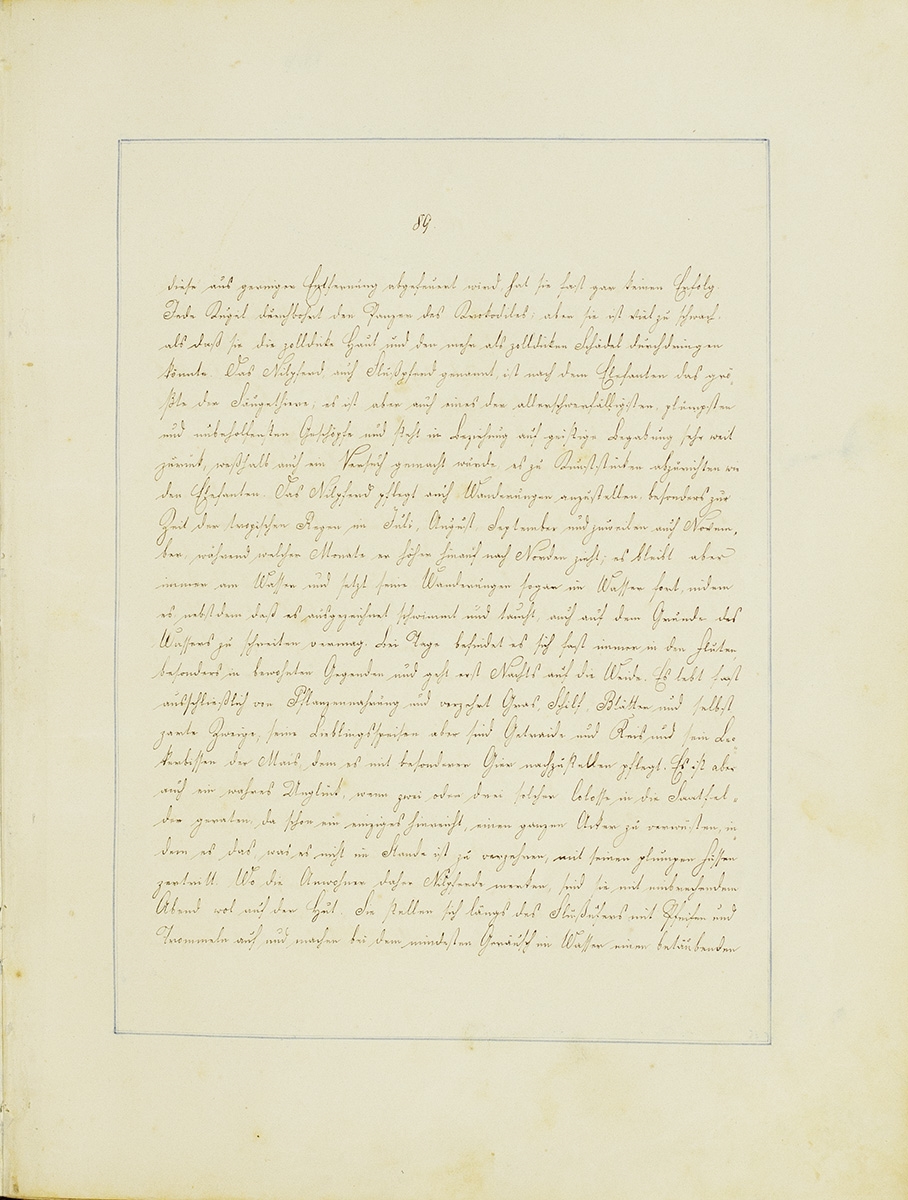 89.
diese aus geringer Entfernung abgefeuert wird, hat sie fast gar keinen Erfolg.
Jede Kugel durchbohrt den Panzer des Krokodiles; aber sie ist viel zu schwach,
als daß sie die zolldicke Haut und den mehr als zolldicken Schädel durchdringen
könnte. Das Nilpferd auch Flußpferd genannt, ist nach dem Elefanten das grö-
ßte der Säugethiere; es ist aber auch eines der allerschwerfälligsten, plumpsten
und unbeholfensten Geschöpfe und steht in Beziehung auf geistige Begabung sehr weit
zurück, weßhalb auch ein Versuch gemacht wurde es zu Kunststücken abzurichten wie
den Elefanten. Das Nilpferd pflegt auch Wanderungen anzustellen, besonders zur
Zeit der tropischen Regen im Juli, August, September und zuweilen auch Novem-
ber, während welcher Monate er höher hinauf nach Norden zieht; es bleibt aber
immer am Wasser und setzt seine Wanderungen sogar im Wasser fort, indem
es nebstdem daß es ausgezeichnet schwimmt und taucht, auch auf dem Grunde des
Wassers zu schreiten vermag. Bei Tage befindet es sich fast immer in den Fluten
besonders in bewohnten Gegenden und geht erst Nachts auf die Weide. Es lebt fast
ausschließlich von Pflanzennahrung und verzehrt Gras, Schilf, Blätter und selbst
zarte Zweige, seine Lieblingsspeisen aber sind Getraide und Reis und sein Le-
kerbissen der Mais, dem es mit besonderer Gier nachzustellen pflegt. Es ist aber
auch ein wahres Unglück, wenn zwei oder drei solcher Colosse in die Saatfel-
der geraten, da schon ein einziges hinreicht, einen ganzen Acker zu verwüsten, in-
dem es das, was es nicht im Stande ist zu verzehren, mit seinen plumpen Füssen
zertritt. Wo die Anwohner daher Nilpferde merken, sind sie mit anbrechendem
Abend wol auf der Hut. Sie stellen sich längs des Flußufers mit Pfeifen und
Trommeln auf und machen bei dem mindesten Geräusch im Wasser einen betäubenden